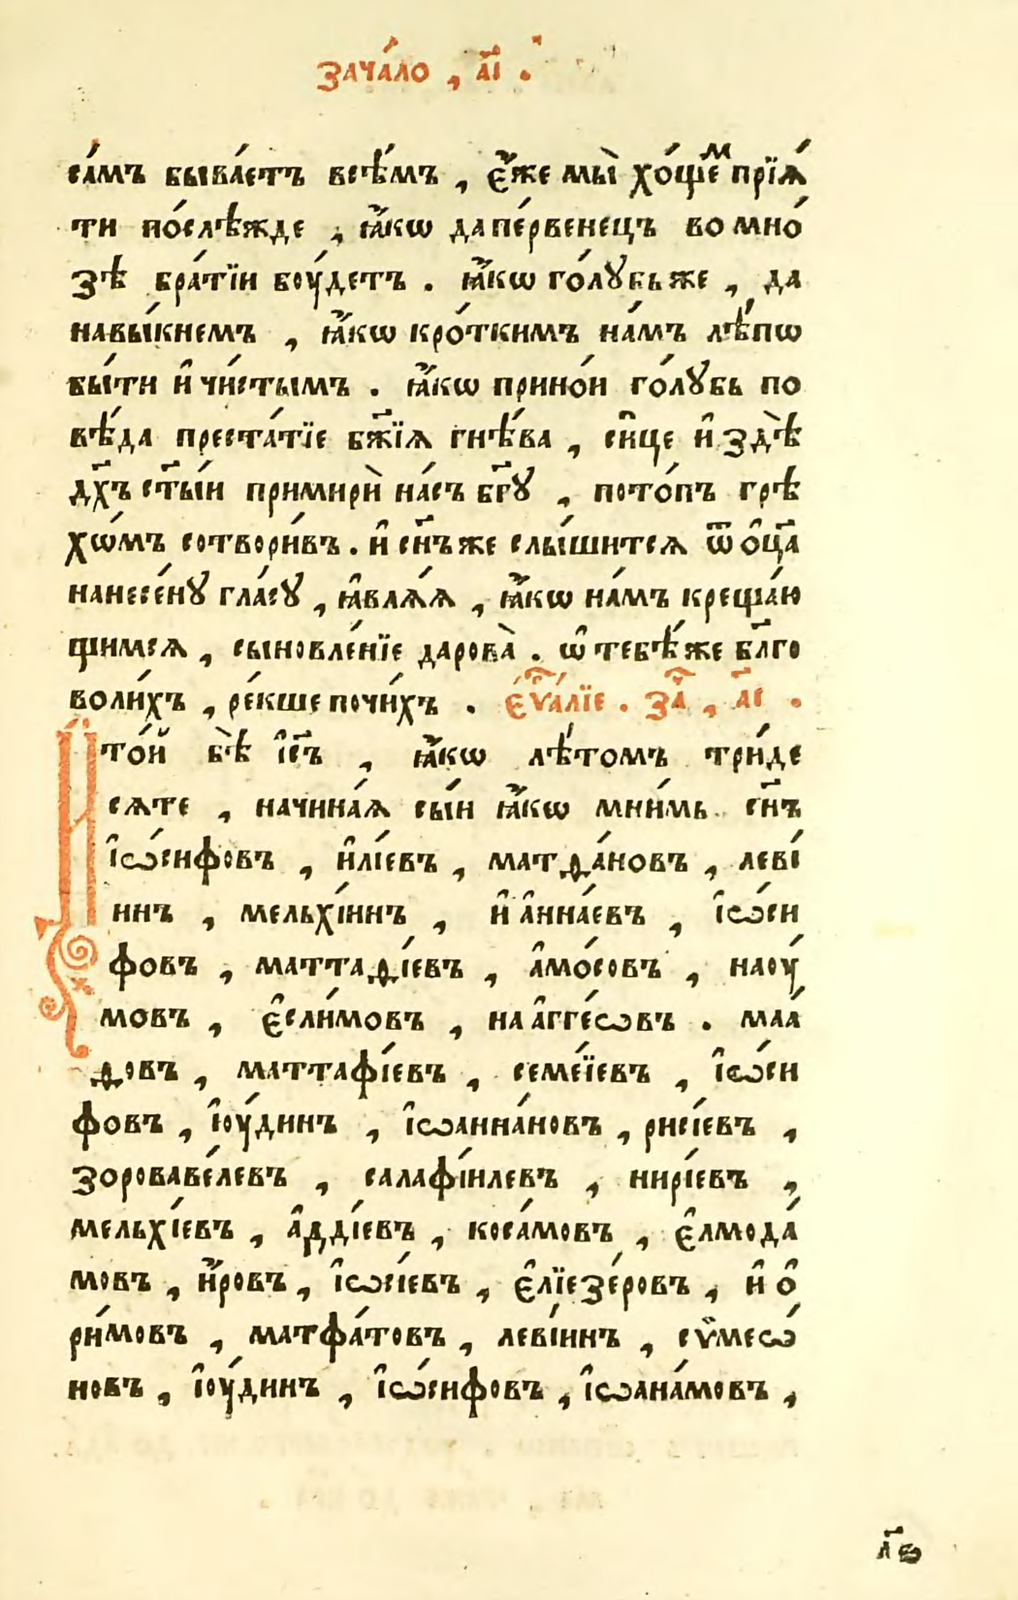 зача́ло , а҃і .
са́мъ быва́етъ всѣ́мъ , є҆́же мы̀ хо́щеⷨ прїѧ́
ти по́слѣжде , ꙗ҆́кѡ да пе́рвенецъ во мно́
зѣ бра́тїи бꙋ́детъ . ꙗ҆́кѡ го́лꙋбь же , да
навы́кнемъ , ꙗ҆́кѡ кро́ткимъ на́мъ лѣ́пѡ
бы́ти и҆ чи́стымъ . ꙗ҆́кѡ при но́и го́лꙋбь по
вѣ́да преста́тїе бж҃їѧ гнѣ́ва , си́це и҆ здѣ̀
дх҃ъ ст҃ы́и примирѝ на́съ бг҃ꙋ , пото́пъ грѣ
хѡ́мъ сотвори́въ . и҆ сн҃ъ же слы́шитсѧ ѿ о҆ц҃а
нанесе́нꙋ гла́сꙋ , ꙗ҆влѧ́ѧ , ꙗ҆́кѡ на́мъ креща́ю
щимсѧ , сыновле́нїе дарова̀ . ѡ҆ тебѣ́ же бл҃го
воли́хъ , ре́кше почи́хъ . є҆ѵⷢ҇а́лїе . за҃ , а҃і .
И҆ то́й бѣ̀ і҆с҃ъ , ꙗ҆́кѡ лѣ́томъ три́де
сѧте , начина́ѧ сы́и ꙗ҆́кѡ мни́мь сн҃ъ
і҆ѡ́сифовъ , и҆лі́евъ , матѳа́новъ , леві́
инъ , мельхі́инъ , и҆ а҆нна́евъ , і҆ѡ́си
фовъ , маттаѳі́евъ , а҆мо́совъ , наꙋ́
мовъ , є҆сли́мовъ , на а҆гге́ѡвъ . маа́
ѳовъ , маттафі́евъ , семеі́евъ , і҆ѡ́си
фовъ , і҆ꙋ́динъ , і҆ѡанна́новъ , риси́евъ ,
зороваве́левъ , салафі́илевъ , нирі́евъ ,
мельхі́евъ , а҆дді́евъ , коса́мовъ , є҆лмода́
мовъ , и҆́ровъ , і҆ѡсі́евъ , є҆лїезе́ровъ , и҆ о҆
ри́мовъ , матфа́товъ , леві́инъ , сѷмеѡ́
новъ , і҆ꙋ́динъ , і҆ѡ́сифовъ , і҆ѡана́мовъ ,